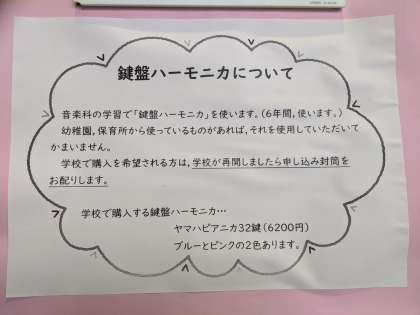 鍵盤ハーモニカについて
音楽科の学習で「鍵盤ハーモニカ」を使います。(6年間、使います。)
幼稚園、保育所から使っているものがあれば、それを使用していただいて
かまいません。
学校で購入を希望される方は、学校が再開しましたら申し込み封筒を
お配りします。
学校で購入する鍵盤ハーモニカ…
ヤマハピアニカ32鍵(6200円)
ブルーとピンクの2色あります。